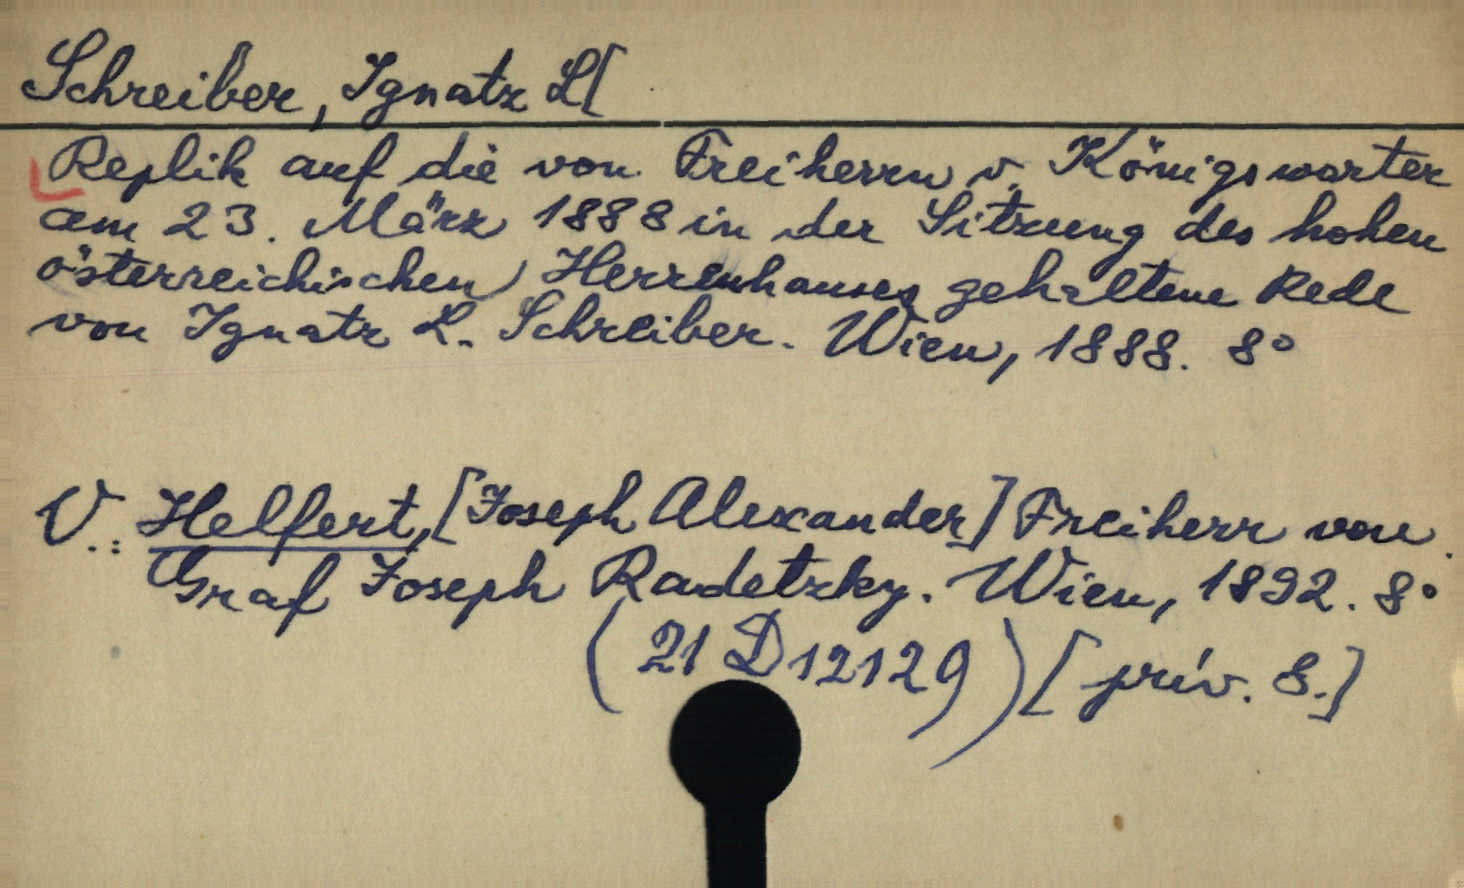 Schreiber, Ignatz L[
Replik auf die von Freiherrn v. Königswarter
am 23. März 1888 in der Sitzung des hohen
österreichischen Herrenhauses gehaltene Rede
von Ignatz L. Schreiber. Wien, 1888. 8°
V.: Helfert, [Joseph Alexander] Freiherr von.
Graf Joseph Radetzky. Wien, 1892. 8°
(21 D 12129) [priv. 8.]